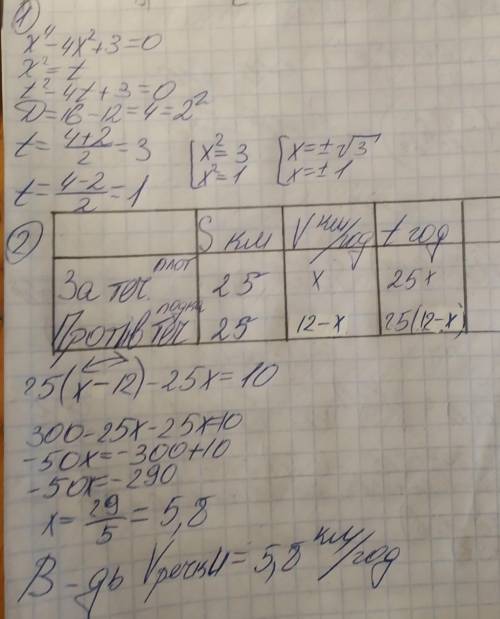 1
x⁴-4x²+3=0
x²=t
t²-4t+3=0
D=16-12=4=2²
t=(4+2)/2=3 [x²=3 [x=±√3
t=(4-2)/2=1 x²=1 x=±1
2
S км V км/год t год
За теч. плот 25 x 25x
Против теч лодки 25 12-x 25(12-x)
25(x-12)-25x=10
300-25x-25x=10
-50x=-300+10
-50x=-290
x=29/5=5,8
В-дь Vречки=5,8 км/год